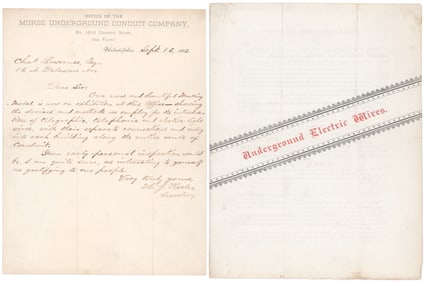 OFFICE OF THE
MORSE UNDERGROUND CONDUIT COMPANY,
Chestnut Street,
Philadelphia, Sept. 13, 188
Chas Lawrence, Esq.
Delaware Ave
Dear Sir:
Our new and beautiful Working
Model is now on exhibition at this Office showing
the devices and methods we employ for the introduc
tion of telegraphic, telephonic and electric light
wires, with their separate connections and entry
into each building along the entire route of
Conduit.
Your early personal inspection would
be, I am quite sure, as interesting to yourself
as gratifying to our people.
Very truly yours,
Secretary
Underground Electric Wires.